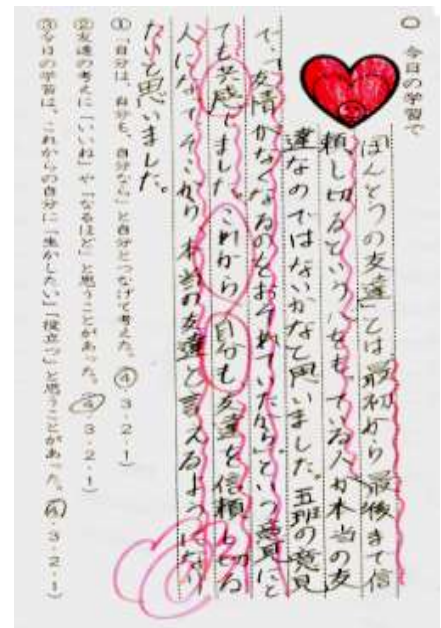 ○ 今日の学習で
ほんとうの友達」とは最初から最後まで信
頼し切るという心をもっている人が本当の友
達なのではないかなと思いました。五班の意見
で、「友情がなくなるのをおそれていたから」という意見にと
ても共感しました。これから自分も友達を信頼し切る
人になってそこから本当の友達と言えるようになり
たいと思いました。
①「自分は、自分も、自分なら」と自分とつなげて考えた。（④・3・2・1）
②友達の考えに「いいね」や「なるほど」と思うことがあった。（④・3・2・1）
③今日の学習は、これからの自分に「生かしたい」「役立つ」と思うことがあった。（④・3・2・1）